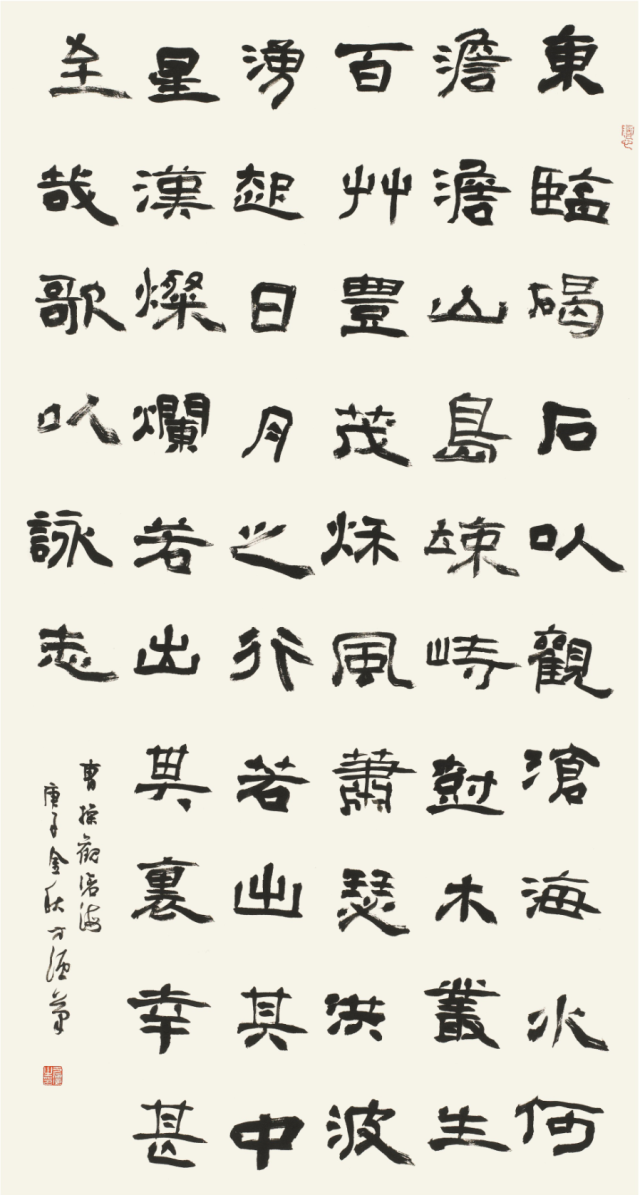 東臨碣石以觀滄海水何
澹澹山島竦峙尌木叢生
百艸豐茂秌風蕭瑟洪波
湧起日月之行若出其中
星漢燦爛若出其裏幸甚
至哉歌以詠志
曹操觀滄海
庚子金秋方